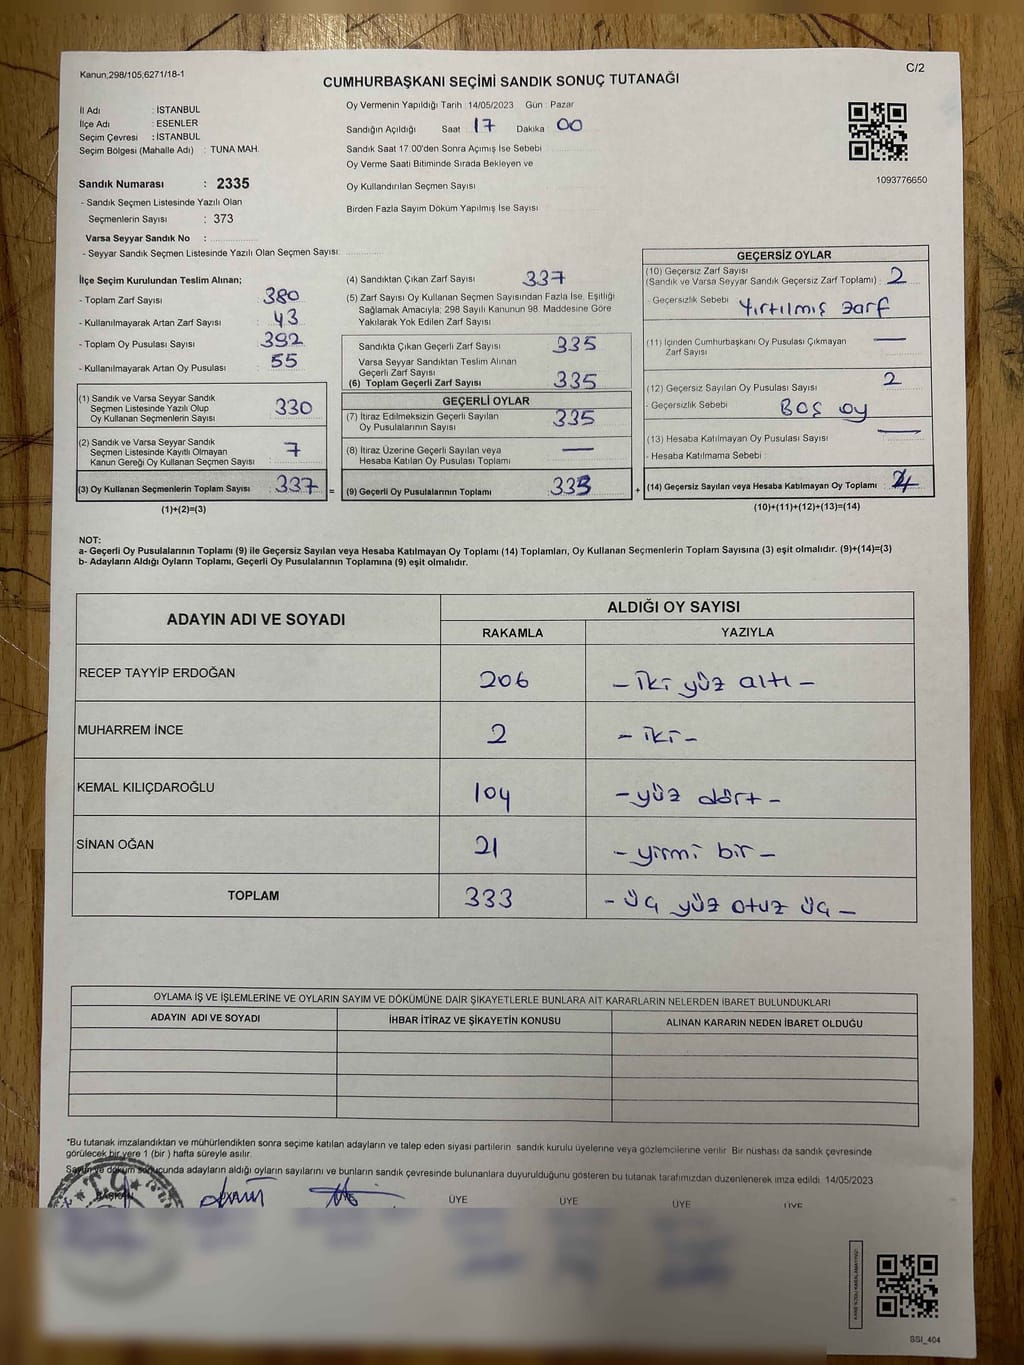 Kanun,298/105,6271/18-1
C/2
CUMHURBAŞKANI SEÇİMİ SANDIK SONUÇ TUTANAĞI
İl Adı : İSTANBUL
İlçe Adı : ESENLER
Seçim Çevresi : İSTANBUL
Seçim Bölgesi (Mahalle Adı) : TUNA MAH.
Sandık Numarası : 2335
- Sandık Seçmen Listesinde Yazılı Olan
Seçmenlerin Sayısı : 373
Varsa Seyyar Sandık No :
- Seyyar Sandık Seçmen Listesinde Yazılı Olan Seçmen Sayısı:
Oy Vermenin Yapıldığı Tarih : 14/05/2023 Gün : Pazar
Sandığın Açıldığı Saat : 17 Dakika : 00
Sandık Saat 17:00'den Sonra Açımış İse Sebebi
Oy Verme Saati Bitiminde Sırada Bekleyen ve
Oy Kullandırılan Seçmen Sayısı
Birden Fazla Sayım Döküm Yapılmış İse Sayısı
1093776650
İlçe Seçim Kurulundan Teslim Alınan;
- Toplam Zarf Sayısı : 380
- Kullanılmayarak Artan Zarf Sayısı : 43
- Toplam Oy Pusulası Sayısı : 392
- Kullanılmayarak Artan Oy Pusulası : 55
(1) Sandık ve Varsa Seyyar Sandık
Seçmen Listesinde Yazılı Olup
Oy Kullanan Seçmenlerin Sayısı : 330
(2) Sandık ve Varsa Seyyar Sandık
Seçmen Listesinde Kayıtlı Olmayan
Kanun Gereği Oy Kullanan Seçmen Sayısı : 7
(3) Oy Kullanan Seçmenlerin Toplam Sayısı : 337 =
(1)+(2)=(3)
(4) Sandıktan Çıkan Zarf Sayısı : 337
(5) Zarf Sayısı Oy Kullanan Seçmen Sayısından Fazla İse, Eşitliği
Sağlamak Amacıyla, 298 Sayılı Kanunun 98. Maddesine Göre
Yakılarak Yok Edilen Zarf Sayısı
Sandıkta Çıkan Geçerli Zarf Sayısı : 335
Varsa Seyyar Sandıktan Teslim Alınan
Geçerli Zarf Sayısı
(6) Toplam Geçerli Zarf Sayısı : 335
GEÇERLİ OYLAR
(7) İtiraz Edilmeksizin Geçerli Sayılan
Oy Pusulalarının Sayısı : 335
(8) İtiraz Üzerine Geçerli Sayılan veya
Hesaba Katılan Oy Pusulası Toplamı : —
(9) Geçerli Oy Pusulalarının Toplamı : 333 +
GEÇERSİZ OYLAR
(10) Geçersiz Zarf Sayısı
(Sandık ve Varsa Seyyar Sandık Geçersiz Zarf Toplamı) : 2
- Geçersizlik Sebebi : Yırtılmış zarf
(11) İçinden Cumhurbaşkanı Oy Pusulası Çıkmayan
Zarf Sayısı : —
(12) Geçersiz Sayılan Oy Pusulası Sayısı : 2
- Geçersizlik Sebebi : Boş oy
(13) Hesaba Katılmayan Oy Pusulası Sayısı : —
- Hesaba Katılmama Sebebi :
(14) Geçersiz Sayılan veya Hesaba Katılmayan Oy Toplamı : 4
(10)+(11)+(12)+(13)=(14)
NOT:
a- Geçerli Oy Pusulalarının Toplamı (9) ile Geçersiz Sayılan veya Hesaba Katılmayan Oy Toplamı (14) Toplamları, Oy Kullanan Seçmenlerin Toplam Sayısına (3) eşit olmalıdır. (9)+(14)=(3)
b- Adayların Aldığı Oyların Toplamı, Geçerli Oy Pusulalarının Toplamına (9) eşit olmalıdır.
ADAYIN ADI VE SOYADI
ALDIĞI OY SAYISI
RAKAMLA YAZIYLA
RECEP TAYYİP ERDOĞAN 206 – iki yüz altı –
MUHARREM İNCE 2 – iki –
KEMAL KILIÇDAROĞLU 104 – yüz dört –
SİNAN OĞAN 21 – yirmi bir –
TOPLAM 333 – üç yüz otuz üç –
OYLAMA İŞ VE İŞLEMLERİNE VE OYLARIN SAYIM VE DÖKÜMÜNE DAİR ŞİKAYETLERLE BUNLARA AİT KARARLARIN NELERDEN İBARET BULUNDUKLARI
ADAYIN ADI VE SOYADI İHBAR İTİRAZ VE ŞİKAYETİN KONUSU ALINAN KARARIN NEDEN İBARET OLDUĞU
*Bu tutanak imzalandıktan ve mühürlendikten sonra seçime katılan adayların ve talep eden siyasi partilerin sandık kurulu üyelerine veya gözlemcilerine verilir. Bir nüshası da sandık çevresinde
görülecek bir yere 1 (bir ) hafta süreyle asılır.
Sayım ve döküm sonucunda adayların aldığı oyların sayılarını ve bunların sandık çevresinde bulunanlara duyurulduğunu gösteren bu tutanak tarafımızdan düzenlenerek imza edildi. 14/05/2023
BAŞKAN ÜYE ÜYE ÜYE ÜYE
SSI_404